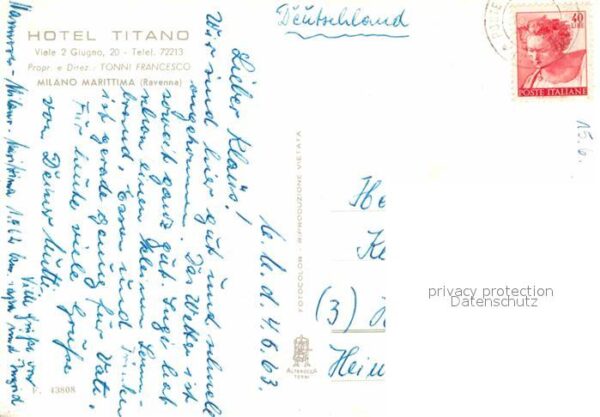 HOTEL TITANO
Viale 2 Giugno, 20 - Telef. 72213
Propr. e Direz.: TONNI FRANCESCO
MILANO MARITTIMA (Ravenna)
Deutschland
40
POSTE ITALIANE
15.6.
M. M. d. 4.6.63.
Lieber Klaus!
Wir sind hier gut und schnell
angekommen. Das Wetter ist
soweit ganz gut. Ingi hat
schon einen kleinen Sonn-
brand, Essen und Trinken
ist gerade genug für Vati.
Für heute viele Grüße
von Deiner Mutti.
Viele Grüße von
und Ingrid
Hannover - Milano - Marittima 1.
FOTOCOLOR - RIPRODUZIONE VIETATA
ALTEROCCA
TERNI
F. 43808
He
Ke
(3)
Hein
privacy protection
Datenschutz